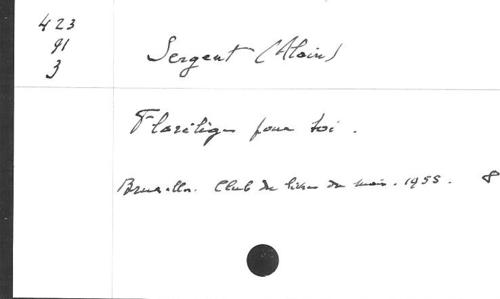 423
91
3
Sergent (Alain)
Florilège pour toi.
Bruxelles. Club du livre du mois. 1955. 8